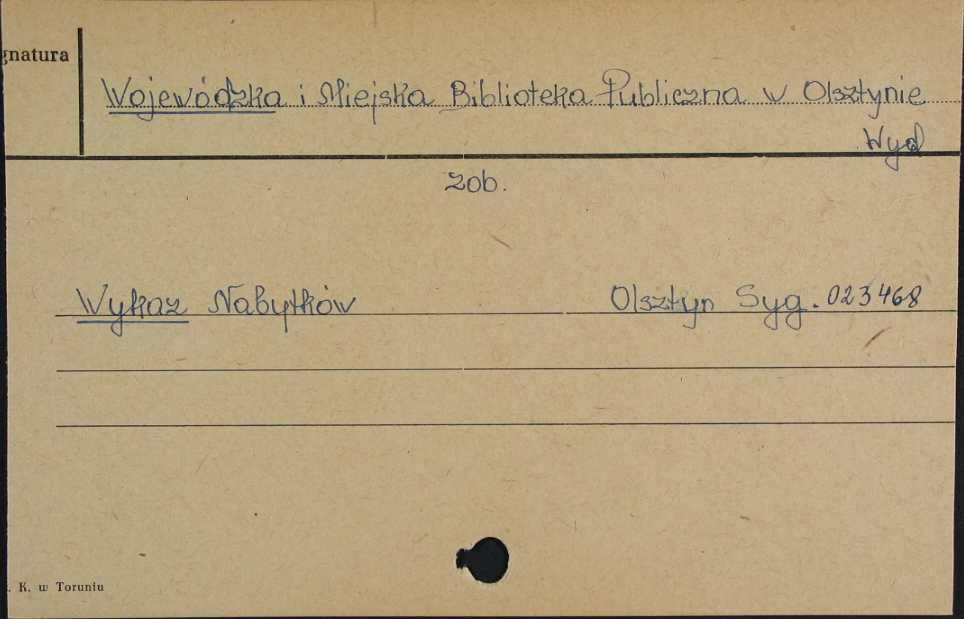 gnatura
Wojewódzka i Miejska Biblioteka Publiczna w Olsztynie
Wyd
zob.
Wykaz Nabytków Olsztyn Syg. 023468
. K. w Toruniu